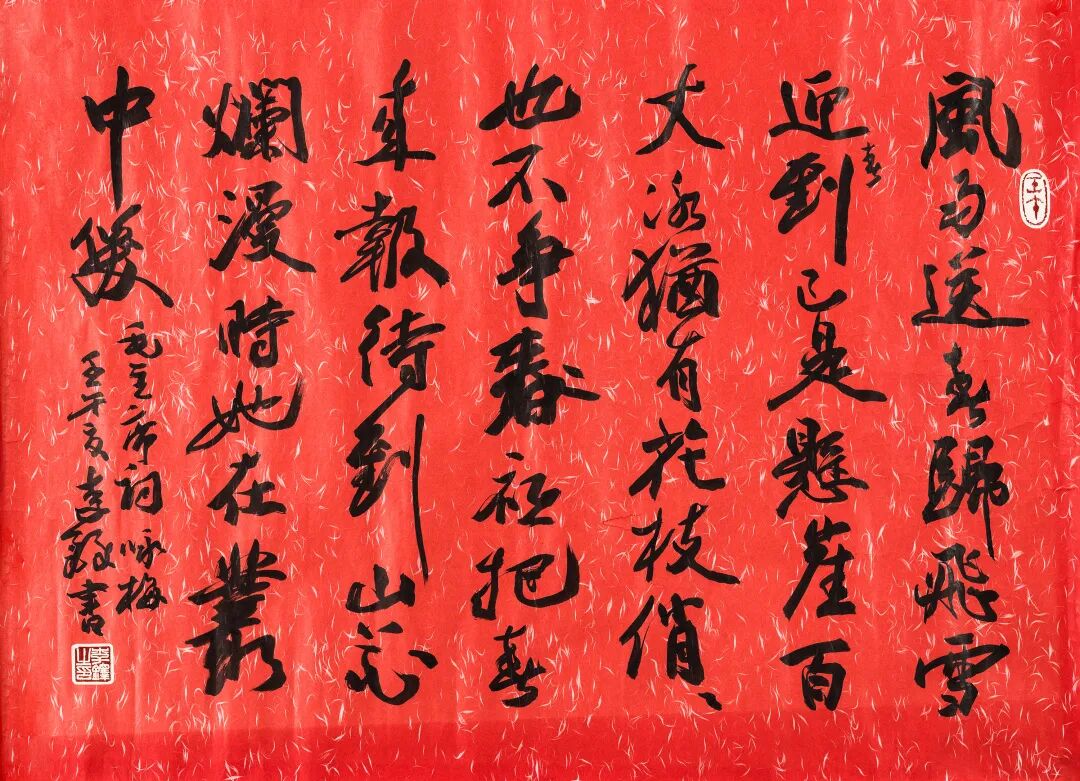 風雨送春歸飛雪
迎春到已是懸崖百
丈冰猶有花枝俏、
也不爭春祗把春
来報待到山花
爛漫時她在叢
中笑
毛主席詞咏梅
壬午夏李鋒書
李鋒之印